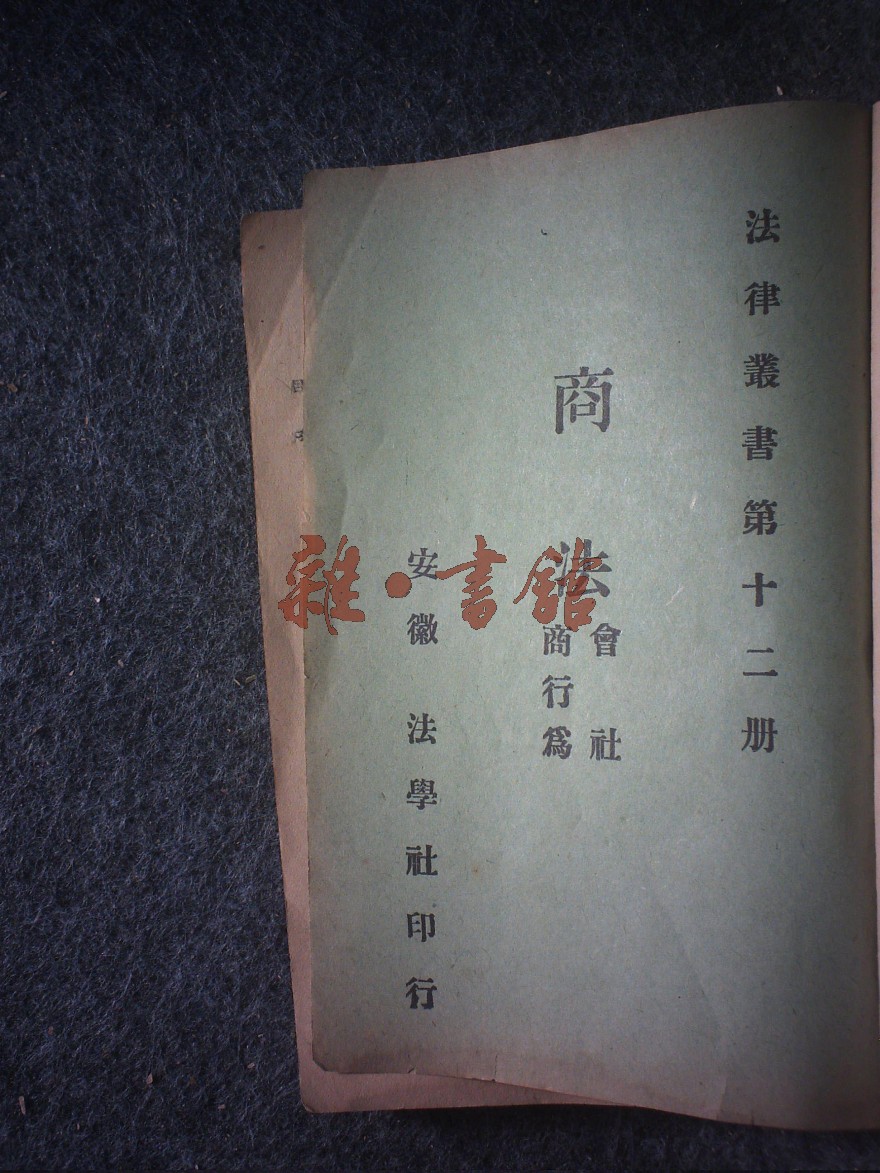 法律叢書第十二册
商法
會社
商行爲
安徽法學社印行
雜·書館